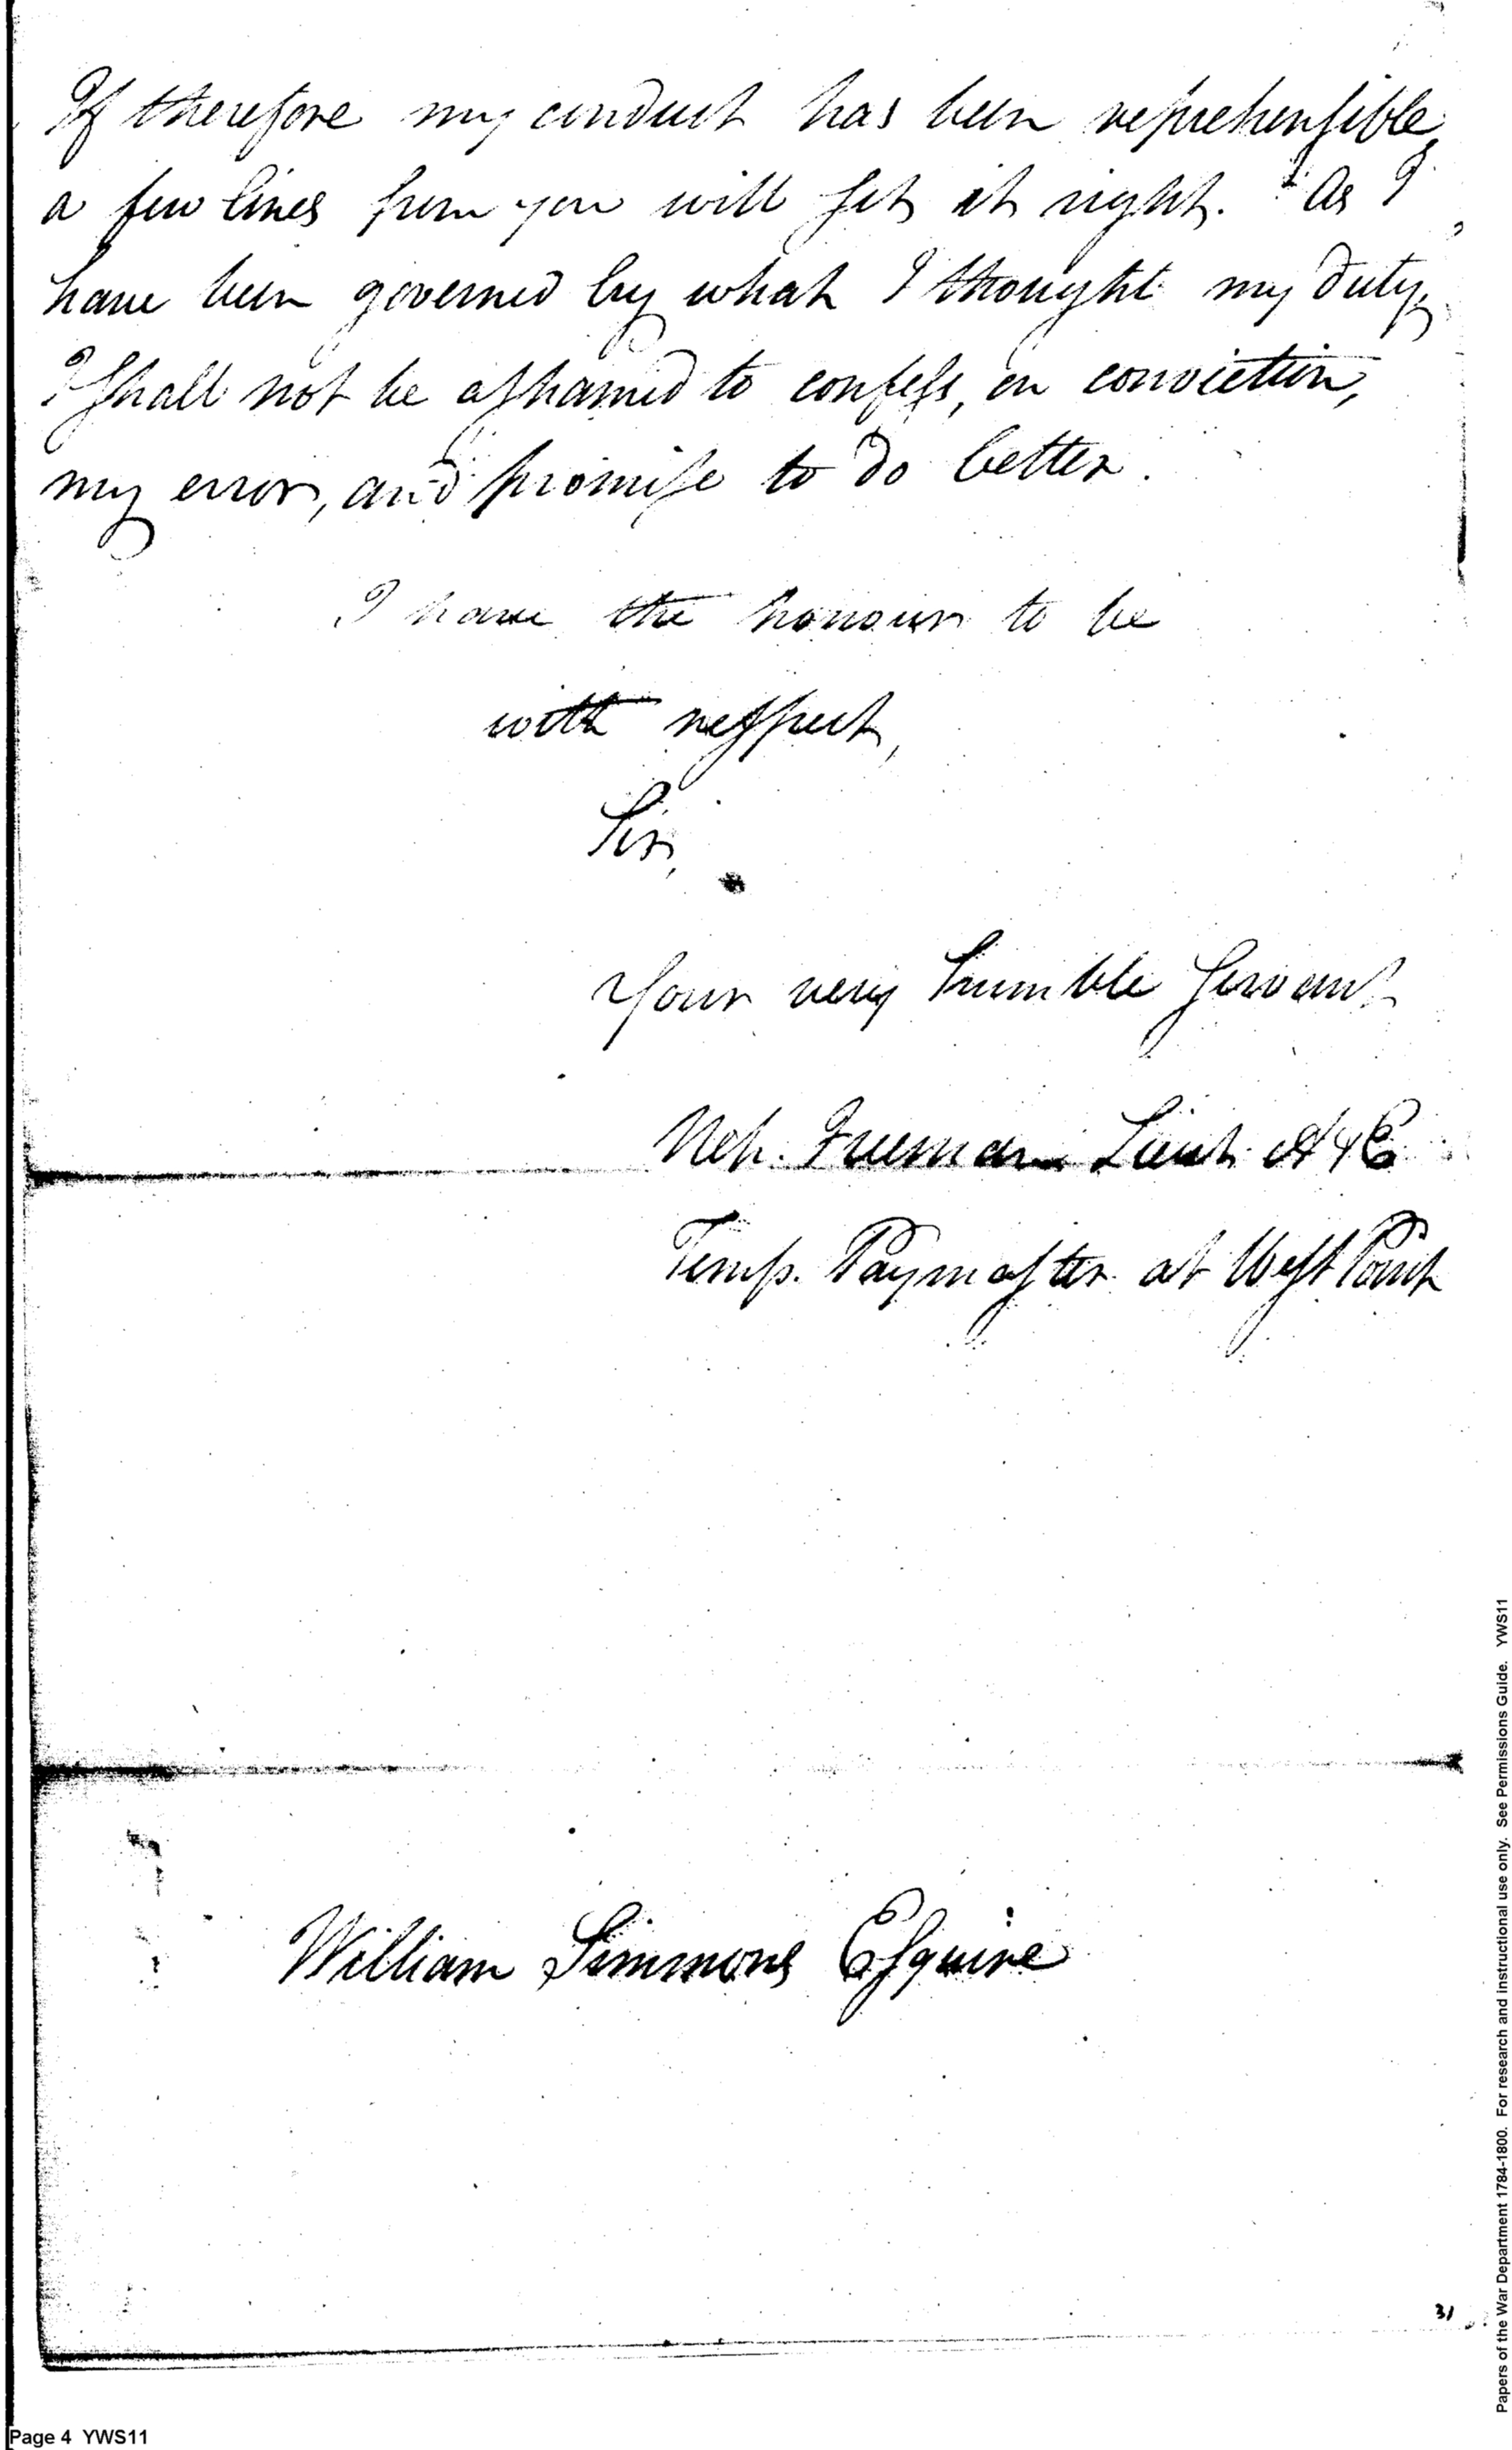 If therefore my conduct has been reprehensible,
a few lines from you will set it right. As I
have been governed by what I thought my duty,
I shall not be ashamed to confess, on conviction,
my error, and promise to do better.
I have the honour to be
with respect,
Sir,
Your very humble Servant
Neh. Freeman Lieut. A & E
Temp. Paymaster at West Point
William Simmons Esquire
31
Page 4 YWS11
Papers of the War Department 1784-1800. For research and instructional use only. See Permissions Guide. YWS11